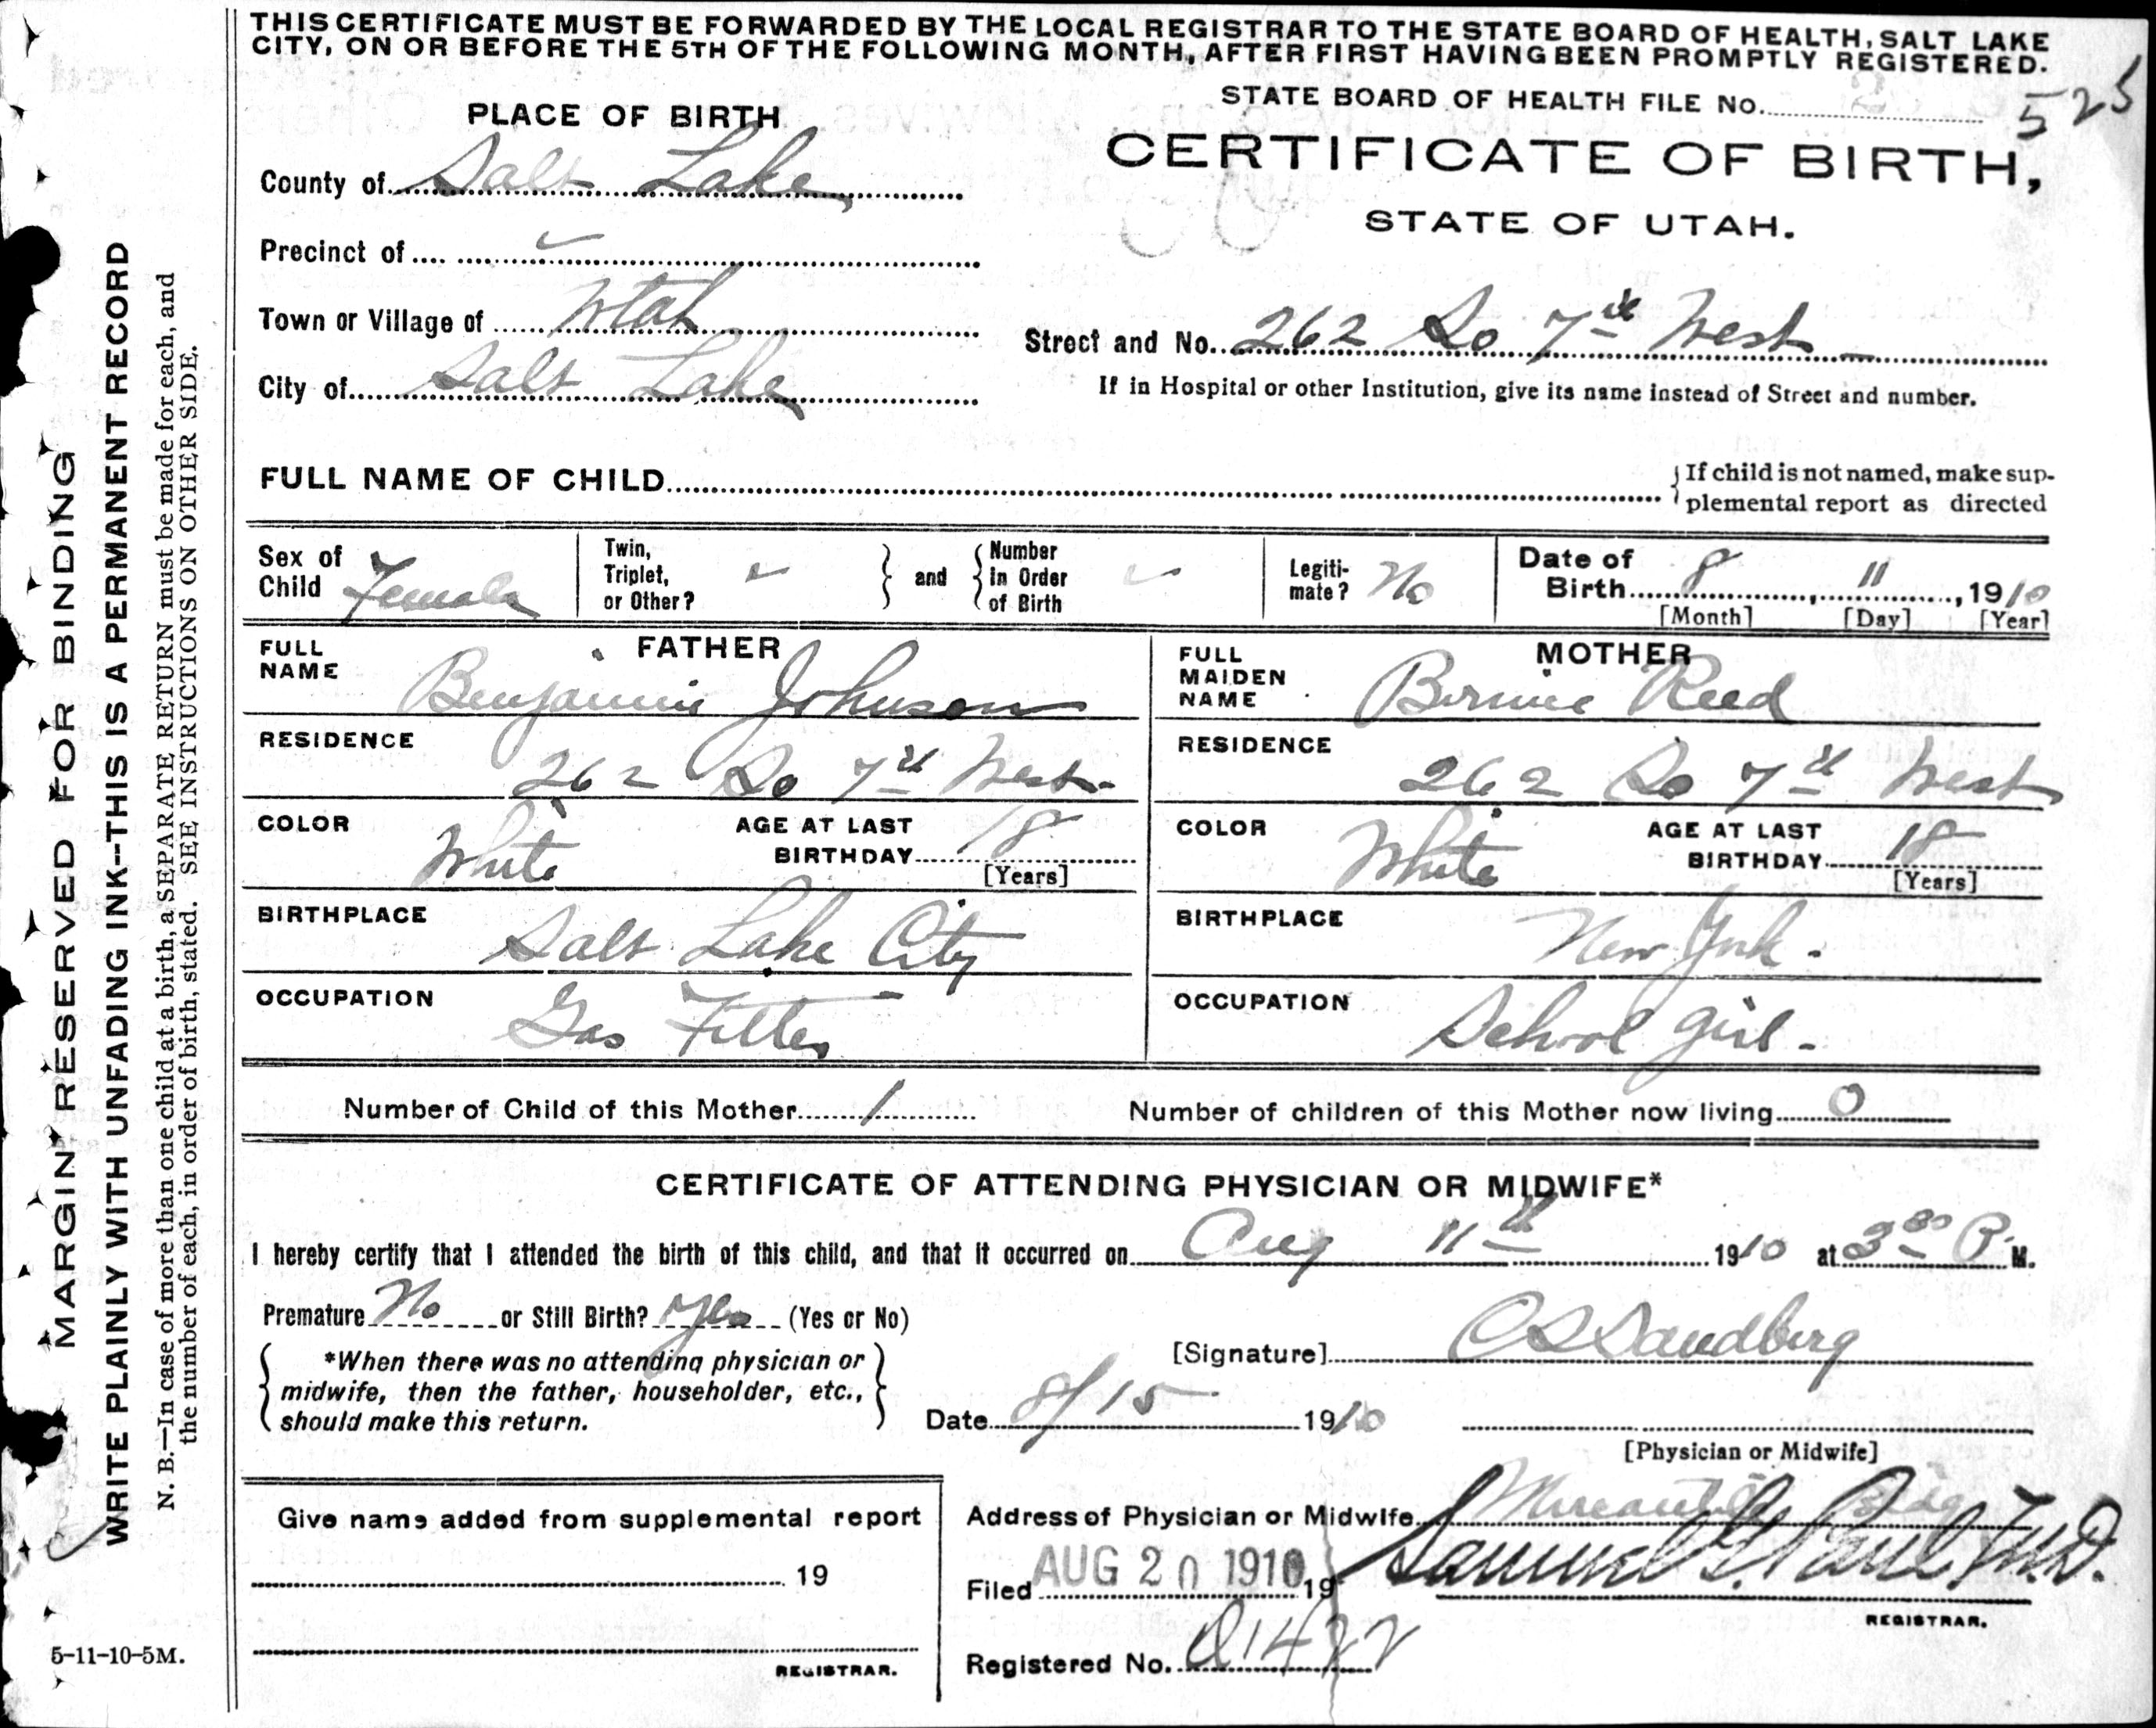 THIS CERTIFICATE MUST BE FORWARDED BY THE LOCAL REGISTRAR TO THE STATE BOARD OF HEALTH, SALT LAKE
CITY, ON OR BEFORE THE 5TH OF THE FOLLOWING MONTH, AFTER FIRST HAVING BEEN PROMPTLY REGISTERED.
STATE BOARD OF HEALTH FILE No. 525
PLACE OF BIRTH
CERTIFICATE OF BIRTH,
STATE OF UTAH.
County of Salt Lake
Precinct of
Town or Village of Utah
Street and No. 262 So 7th West
City of Salt Lake
If in Hospital or other Institution, give its name instead of Street and number.
FULL NAME OF CHILD
{If child is not named, make sup-
plemental report as directed
Sex of Child Female
Twin, Triplet, or Other? } and { Number in Order of Birth
Legiti-mate? No
Date of Birth 8, 11, 1910
[Month] [Day] [Year]
FATHER
FULL NAME Benjamin Johnson
RESIDENCE 262 So 7th West
COLOR White AGE AT LAST BIRTHDAY 18
[Years]
BIRTHPLACE Salt Lake City
OCCUPATION Gas Fitter
MOTHER
FULL MAIDEN NAME Bernice Reed
RESIDENCE 262 So 7th West
COLOR White AGE AT LAST BIRTHDAY 18
[Years]
BIRTHPLACE New York.
OCCUPATION School girl.
Number of Child of this Mother 1 Number of children of this Mother now living 0
CERTIFICATE OF ATTENDING PHYSICIAN OR MIDWIFE*
I hereby certify that I attended the birth of this child, and that it occurred on Aug 11th 1910 at 3 30 P. M.
Premature No or Still Birth? Yes (Yes or No)
[Signature] C S Sandberg
{ *When there was no attending physician or
midwife, then the father, householder, etc.,
should make this return. }
Date 8/15 1910
[Physician or Midwife]
Give name added from supplemental report
19
REGISTRAR.
Address of Physician or Midwife Mercantile Bldg
Filed AUG 20 1910 19 Samuel G. Paul, M.D.
REGISTRAR.
Registered No. 1422
MARGIN RESERVED FOR BINDING
WRITE PLAINLY WITH UNFADING INK--THIS IS A PERMANENT RECORD
N. B.—In case of more than one child at a birth, a SEPARATE RETURN must be made for each, and
the number of each, in order of birth, stated. SEE INSTRUCTIONS ON OTHER SIDE.
5-11-10-5M.